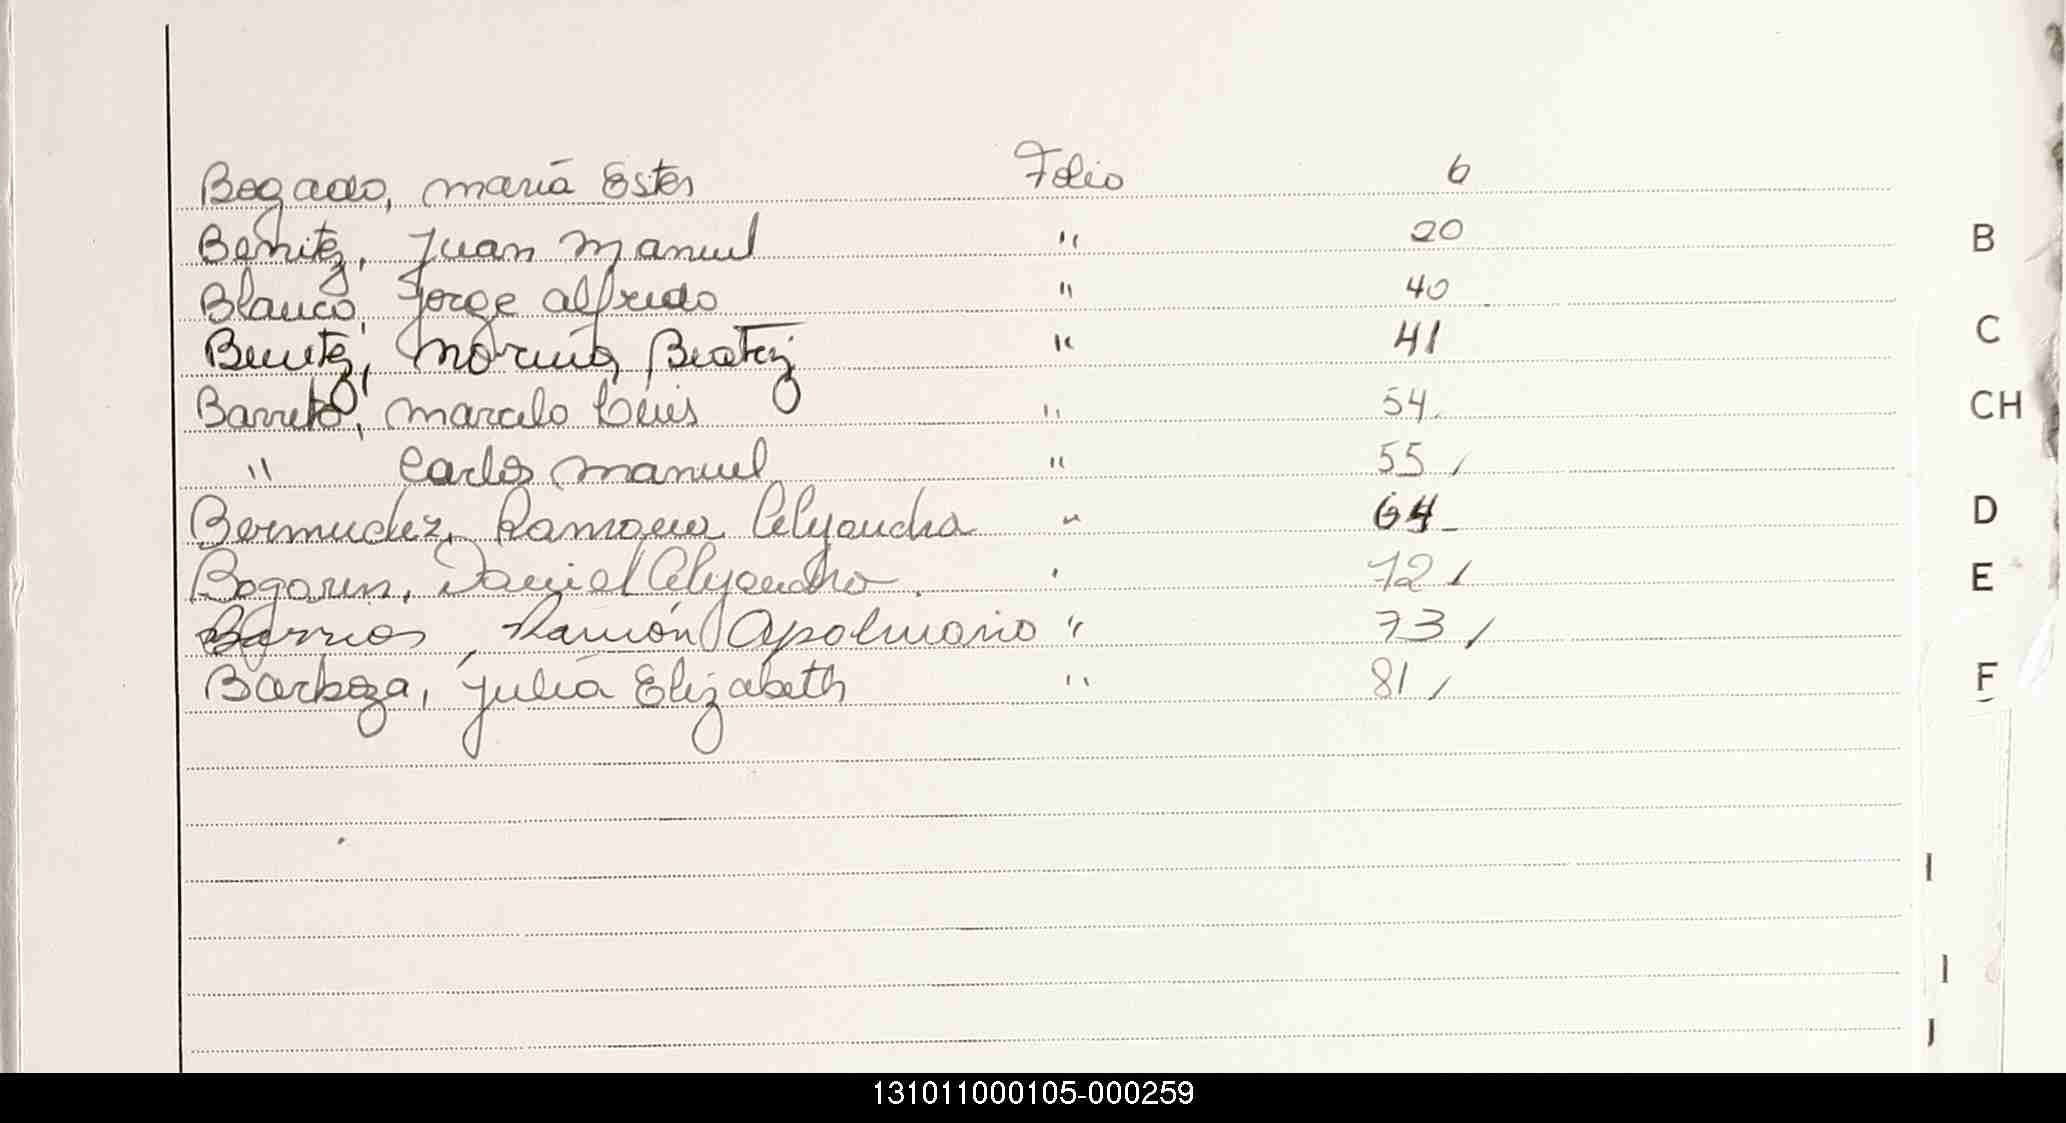 Bogado, maria Ester Folio 6
Benitez, Juan Manuel " 20
Blanco, Jorge alfredo " 40
Benitez, Norma Beatriz " 41
Barreto, Marcelo Luis " 54
" Carlos manuel " 55
Bermudez, Ramona Alejandra " 64
Bogarin, Daniel Alejandro " 72
Barrios, Ramón Apolinario " 73
Barboza, Julia Elizabeth " 81
B
C
CH
D
E
F
I
J
131011000105-000259